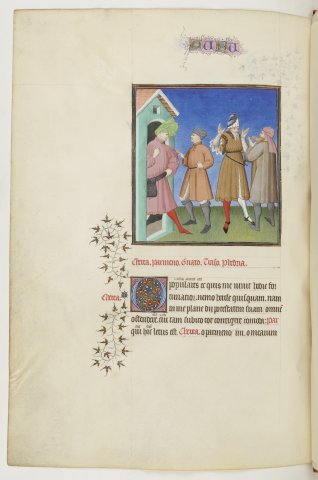 Cherea. parmeno. Gnato. Traso. Phedria.
Cherea
O populares et quis me vivit hodie for
tunatior. nemo hercle quisquam. nam
in me plane dii potestatem suam omnem
ostendere. cui tam subito tot contigere comoda. Par
quid hic letus est. Cherea. o parmeno mi. o mearum